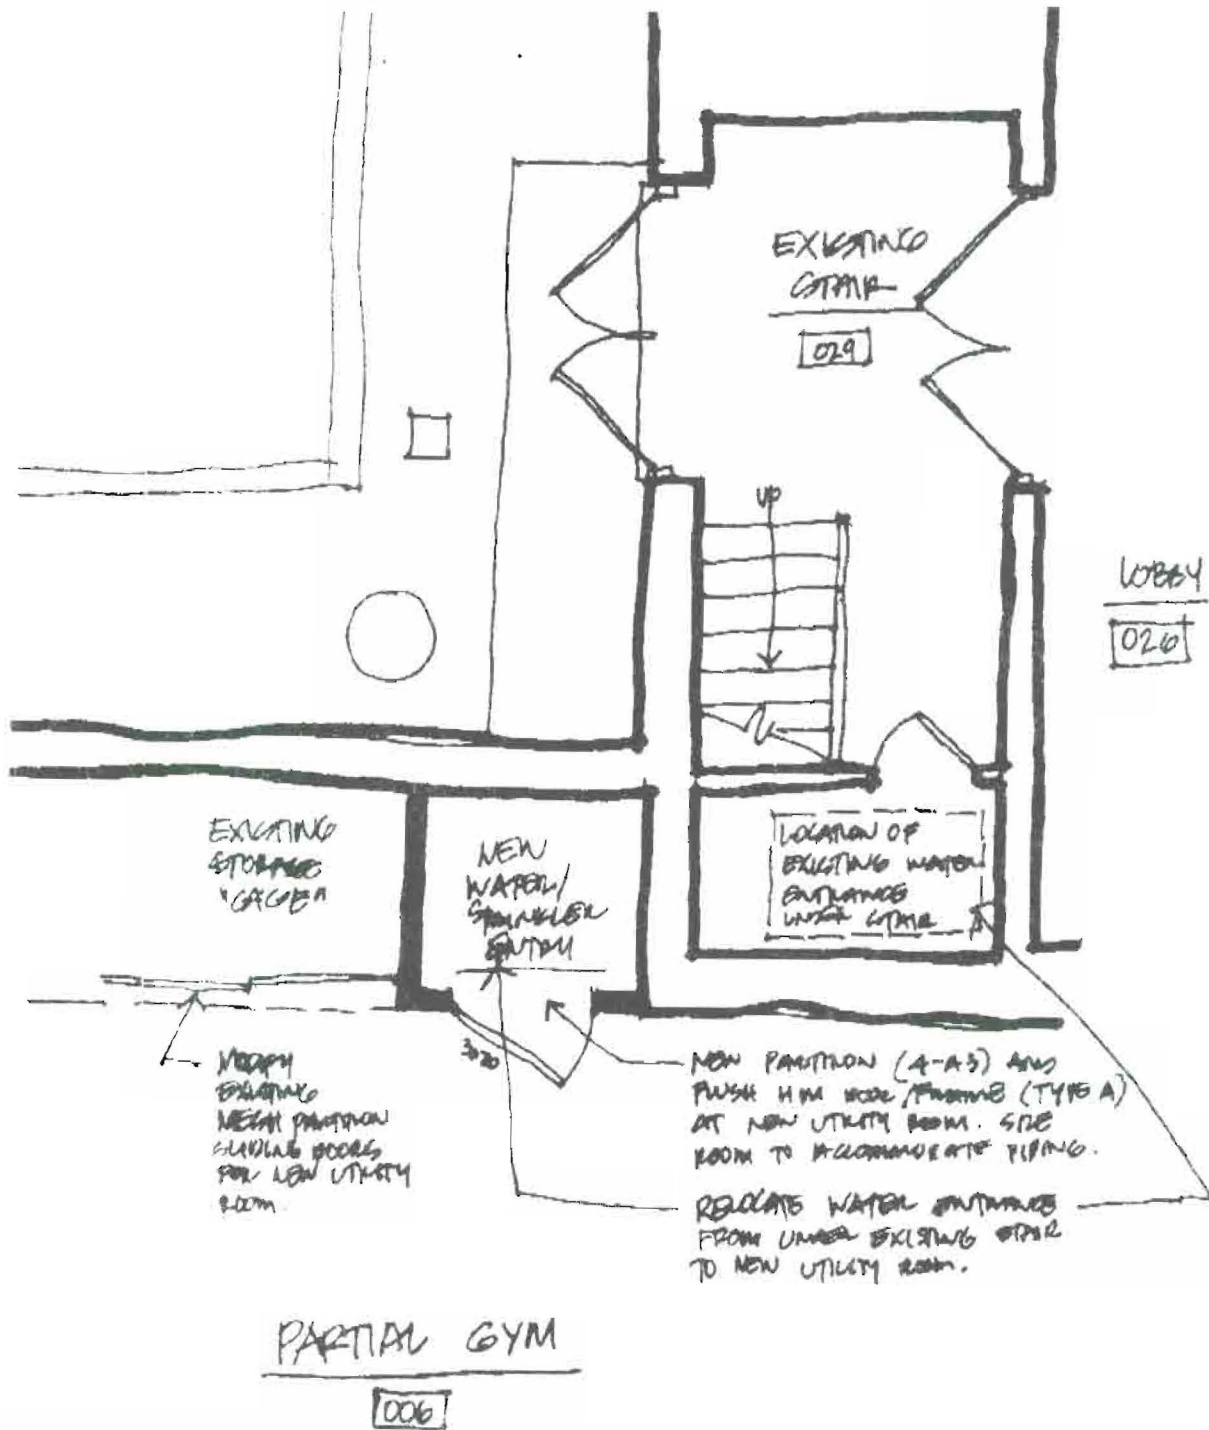 EXISTING
STAIR
029
UP
LOBBY
026
EXISTING
STORAGE
"CAGE"
NEW
WATER/
SPRINKLER
ENTRY
LOCATION OF
EXISTING WATER
ENTRANCE
UNDER STAIR
3070
MODIFY
EXISTING
MESH PARTITION
SLIDING DOORS
FOR NEW UTILITY
ROOM.
NEW PARTITION (4-A3) AND
FLUSH H.M. DOOR/FRAME (TYPE A)
AT NEW UTILITY ROOM. SIZE
ROOM TO ACCOMMODATE PIPING.
RELOCATE WATER ENTRANCE
FROM UNDER EXISTING STAIR
TO NEW UTILITY ROOM.
PARTIAL GYM
006